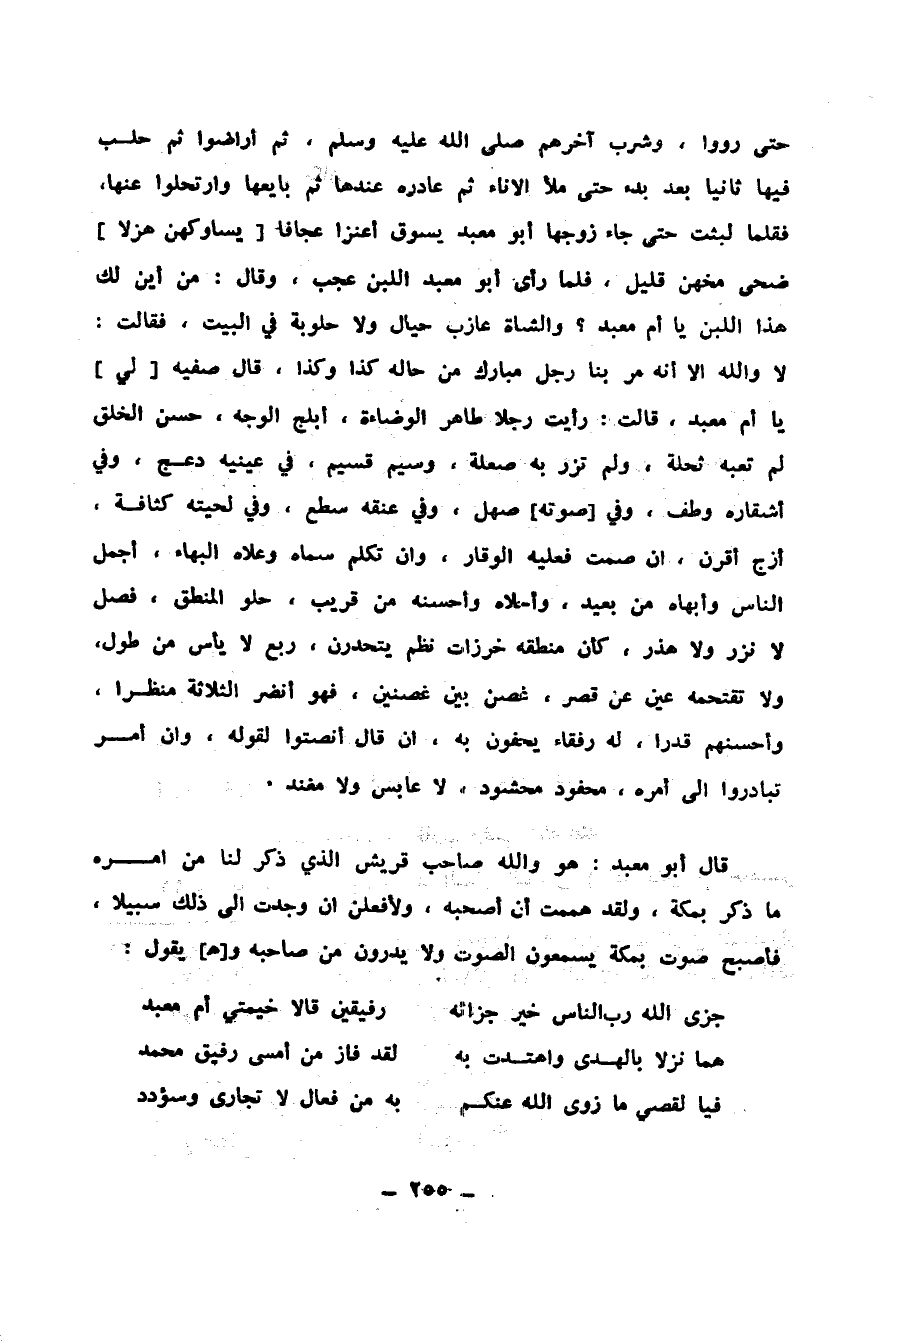 حتى رووا ، وشرب آخرهم صلى الله عليه وسلم ، ثم أراضوا ثم حلب
فيها ثانيا بعد بدء حتى ملأ الاناء ثم عادره عندها ثم بايعها وارتحلوا عنها،
فقلما لبثت حتى جاء زوجها أبو معبد يسوق أعنزا عجافا [ يساوكهن هزلا ]
ضحى مخهن قليل ، فلما رأى أبو معبد اللبن عجب ، وقال : من أين لك
هذا اللبن يا أم معبد ؟ والشاة عازب حيال ولا حلوبة في البيت ، فقالت :
لا والله الا أنه مر بنا رجل مبارك من حاله كذا وكذا ، قال صفيه [ لي ]
يا أم معبد ، قالت : رأيت رجلا طاهر الوضاءة ، أبلج الوجه ، حسن الخلق
لم تعبه ثحلة ، ولم تزر به صعلة ، وسيم قسيم ، في عينيه دعج ، وفي
أشقاره وطف ، وفي [صوته] صهل ، وفي عنقه سطع ، وفي لحيته كثافة ،
أزج أقرن ، ان صمت فعليه الوقار ، وان تكلم سماه وعلاه البهاء ، أجمل
الناس وأبهاه من بعيد ، وأحلاه وأحسنه من قريب ، حلو المنطق ، فصل
لا نزر ولا هذر ، كأن منطقه خرزات نظم يتحدرن ، ربع لا يأس من طول،
ولا تقتحمه عين عن قصر ، غصن بين غصنين ، فهو أنضر الثلاثة منظرا ،
وأحسنهم قدرا ، له رفقاء يحفون به ، ان قال أنصتوا لقوله ، وان أمر
تبادروا الى أمره ، محفود محشود ، لا عابس ولا مفند ٠
قال أبو معبد : هو والله صاحب قريش الذي ذكر لنا من امره
ما ذكر بمكة ، ولقد هممت أن أصحبه ، ولأفعلن ان وجدت الى ذلك سبيلا ،
فأصبح صوت بمكة يسمعون الصوت ولا يدرون من صاحبه و[هـ] يقول :
جزى الله رب الناس خير جزائه رفيقين قالا خيمتي أم معبد
هما نزلا بالهدى واهتدت به لقد فاز من أمسى رفيق محمد
فيا لقصي ما زوى الله عنكم به من فعال لا تجارى وسؤدد
ـ ٢٥٥ ـ